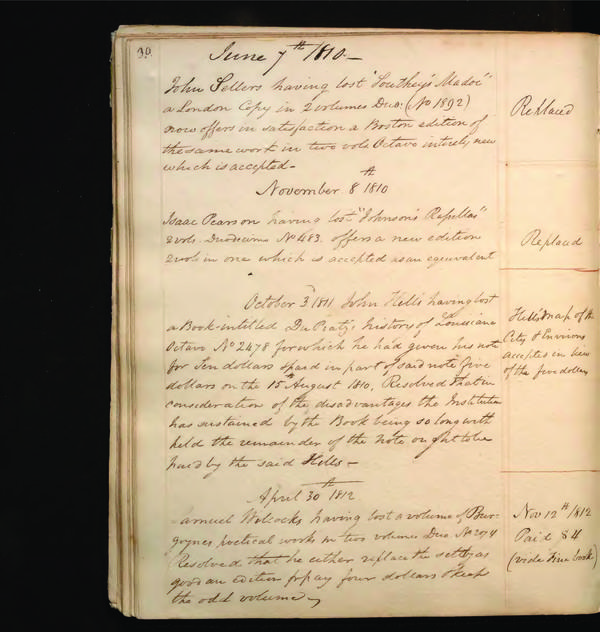 30
June 7th 1810.—
John Sellers having lost "Southey's Madoc"
a London Copy in 2 volumes Duo: (No 1892)
now offers in satisfaction a Boston edition of
the same work in two vols Octavo intirely new
which is accepted—
Replaced
November 8th 1810
Isaac Pearson having lost "Johnson's Rassellas"
2 vols. Duodecimo No 483. offers a new edition
2 vols in one which is accepted as an equivalent
Replaced
October 3d 1811 John Hills having lost
a Book intitled Du Pratz's history of Louisiana
Octavo No 2478 for which he had given his note
for Ten dollars & paid in part of said note five
dollars on the 15th August 1810, Resolved that in
consideration of the disadvantages the Institution
has sustained by the Book being so long with
held the remainder of the note ought to be
paid by the said Hills—
Hills's map of the
City & Environs
accepted in lieu
of the five dollars
April 30th 1812
Samuel Wilcocks having lost a volume of Bur-
goynes poetical works in two volumes Duo. No 2074
Resolved that he either replace the set by as
good an edition or pay four dollars & keep
the odd volume
Nov 12th 1812
Paid $4
(vide Fine book)